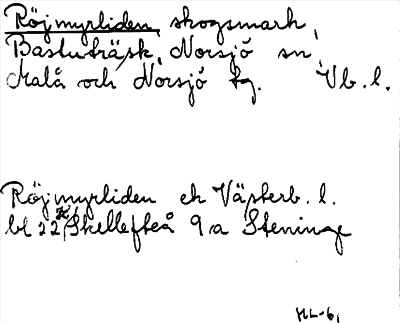 Röjmyrliden, skogsmark,
Bastuträsk, Norsjö sn,
Malå och Norsjö tg. Vb. l.
Röjmyrliden ek Västerb. l.
bl 22 H, Skellefteå 9a Steninge